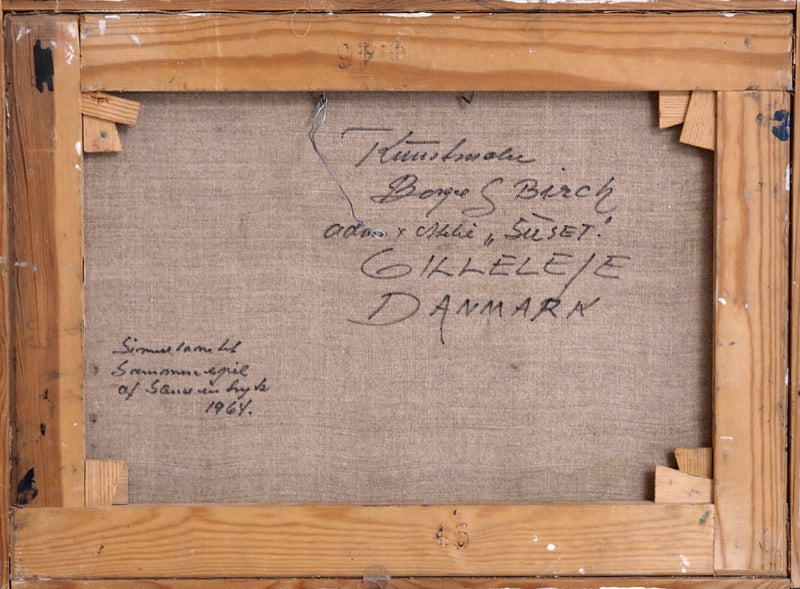 Kunstmaler
Børge G Birch
adr. x „SUSET."
GILLELEJE
DANMARK
Simultant
Sammenspil
af Sanseindtryk
1964.
46